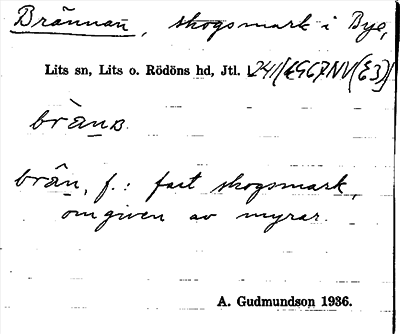 Brännan, skogsmark i Bye,
Lits sn, Lits o. Rödöns hd, Jtl.
brän, f.: fast skogsmark,
omgiven av myrar.
A. Gudmundson 1936.